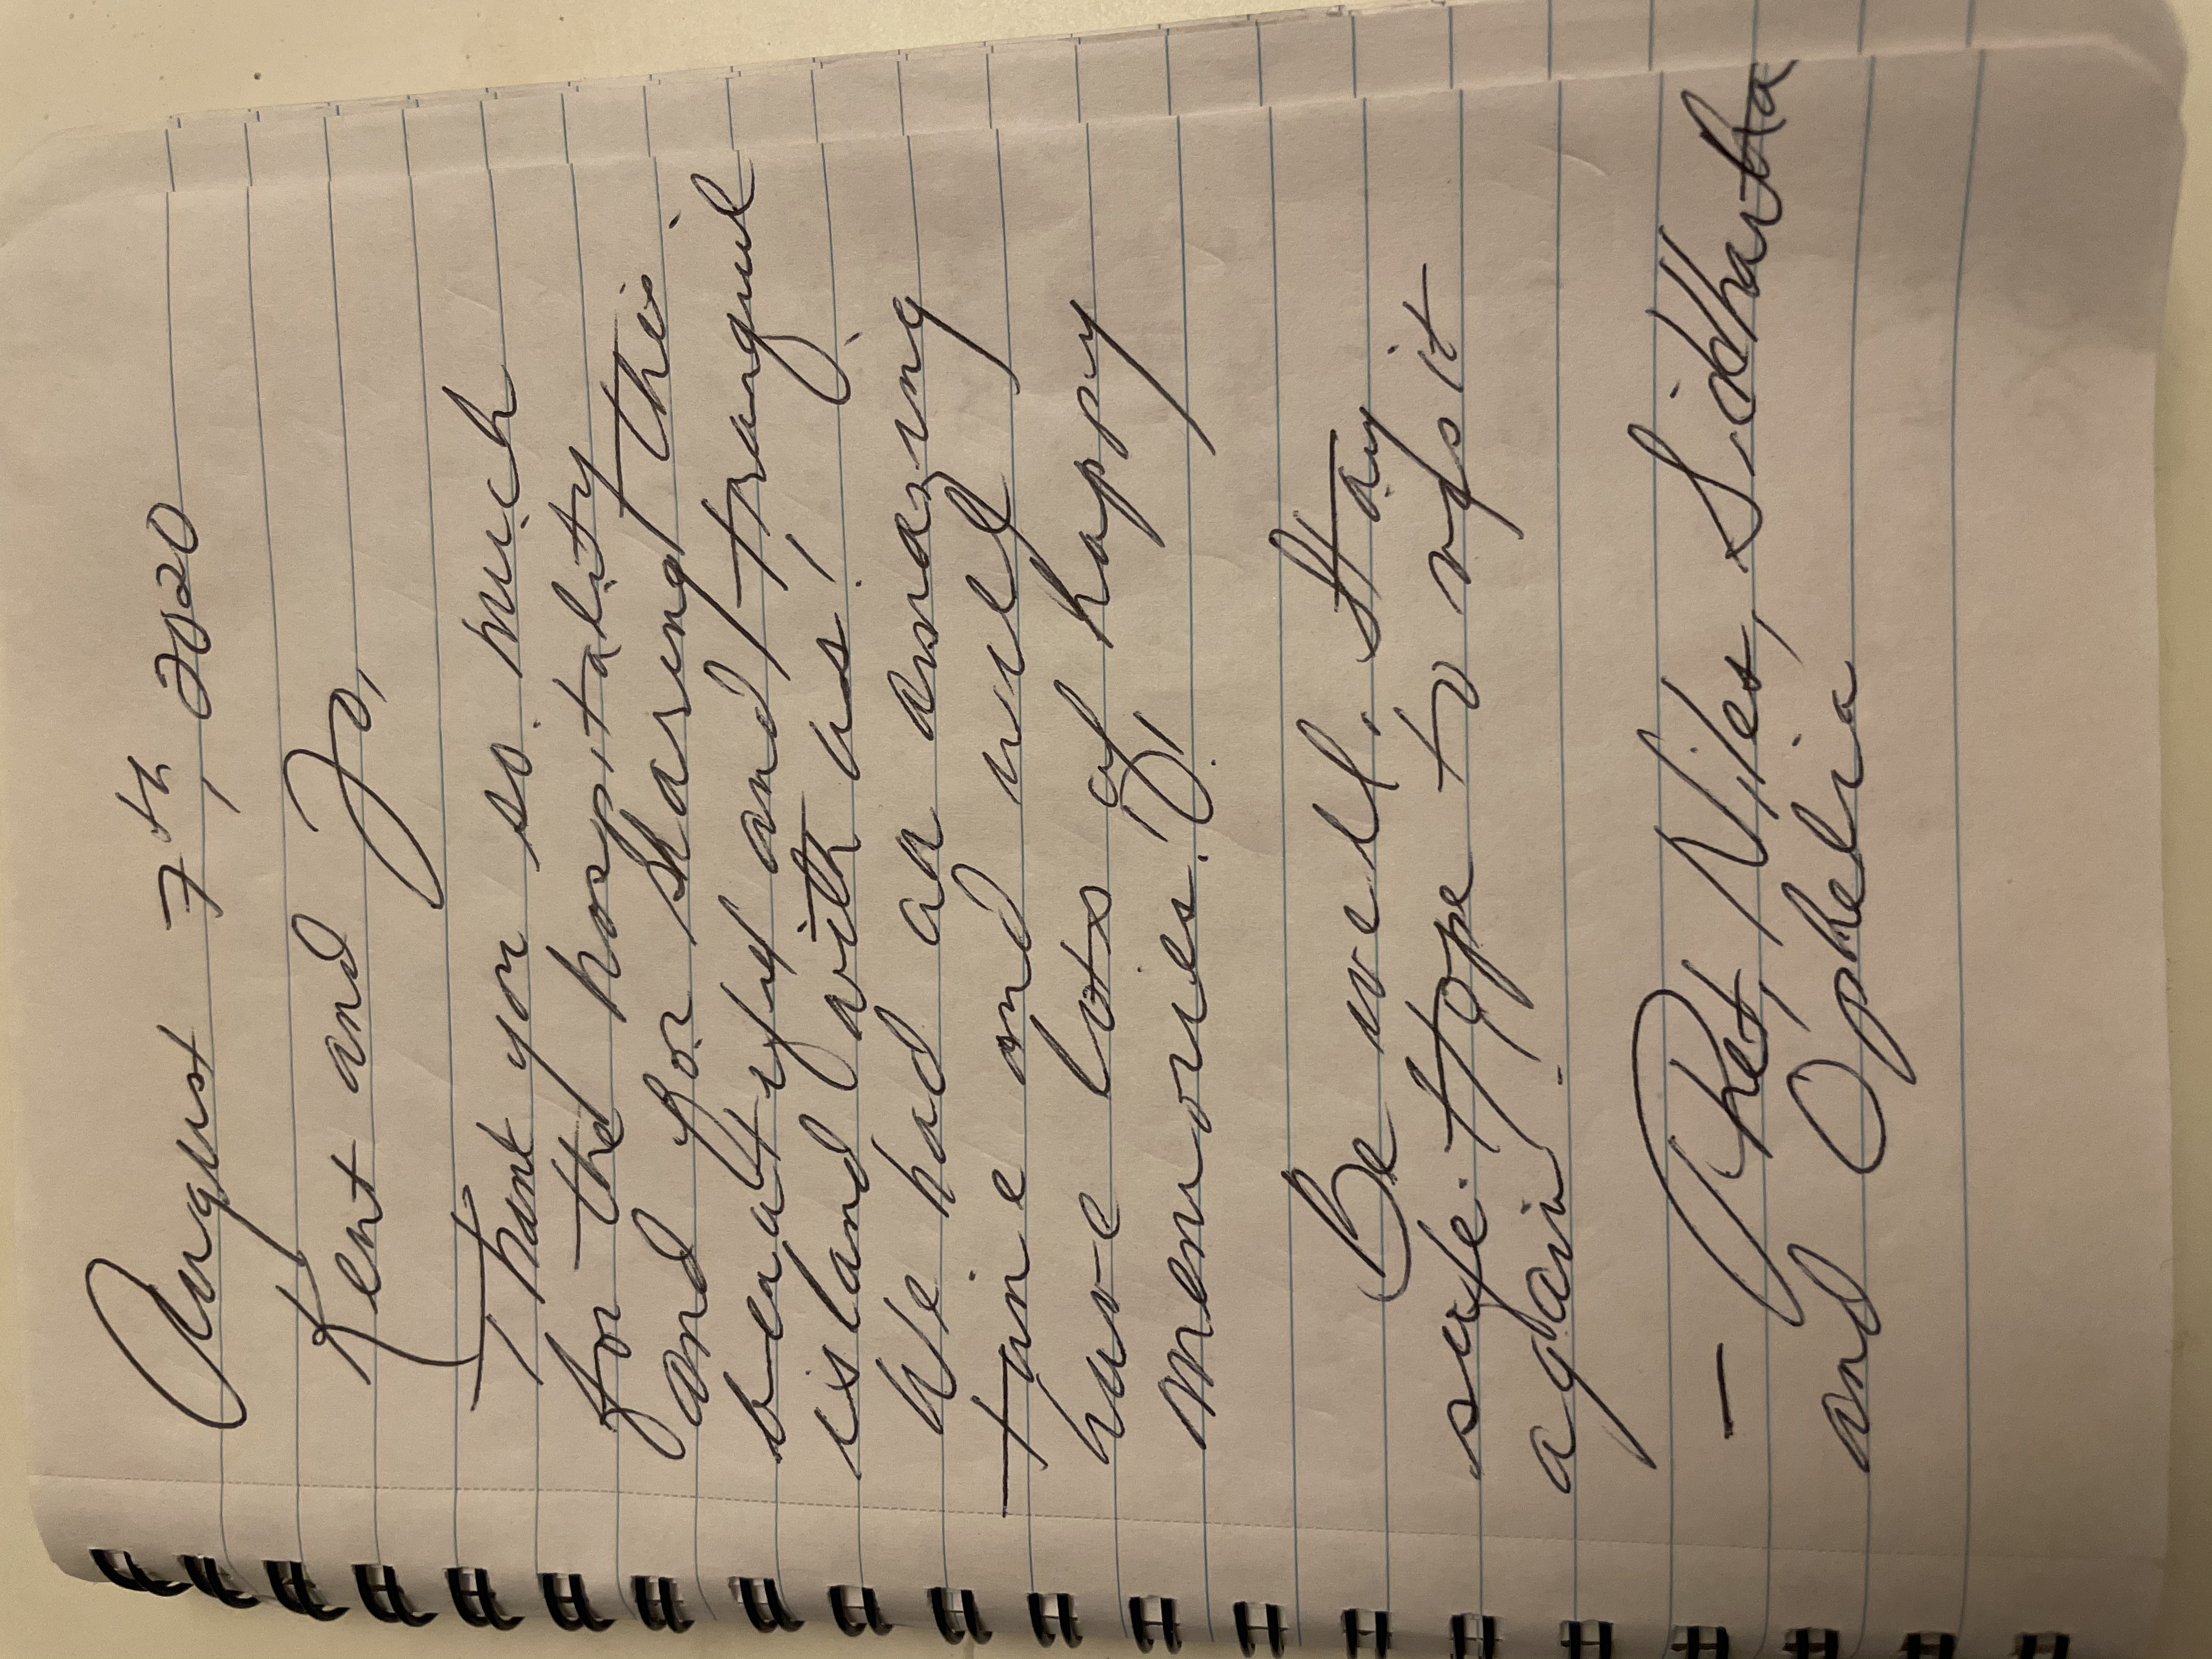 August 7th, 2020
Kent and Jo,
Thank you so much
for the hospitality
and for sharing this
beautiful and tranquil
island with us!
We had an amazing
time and will
have lots of happy
memories!
Be well, stay
safe. Hope to visit
again!
- Niles, Siddhartha
and Ophelia